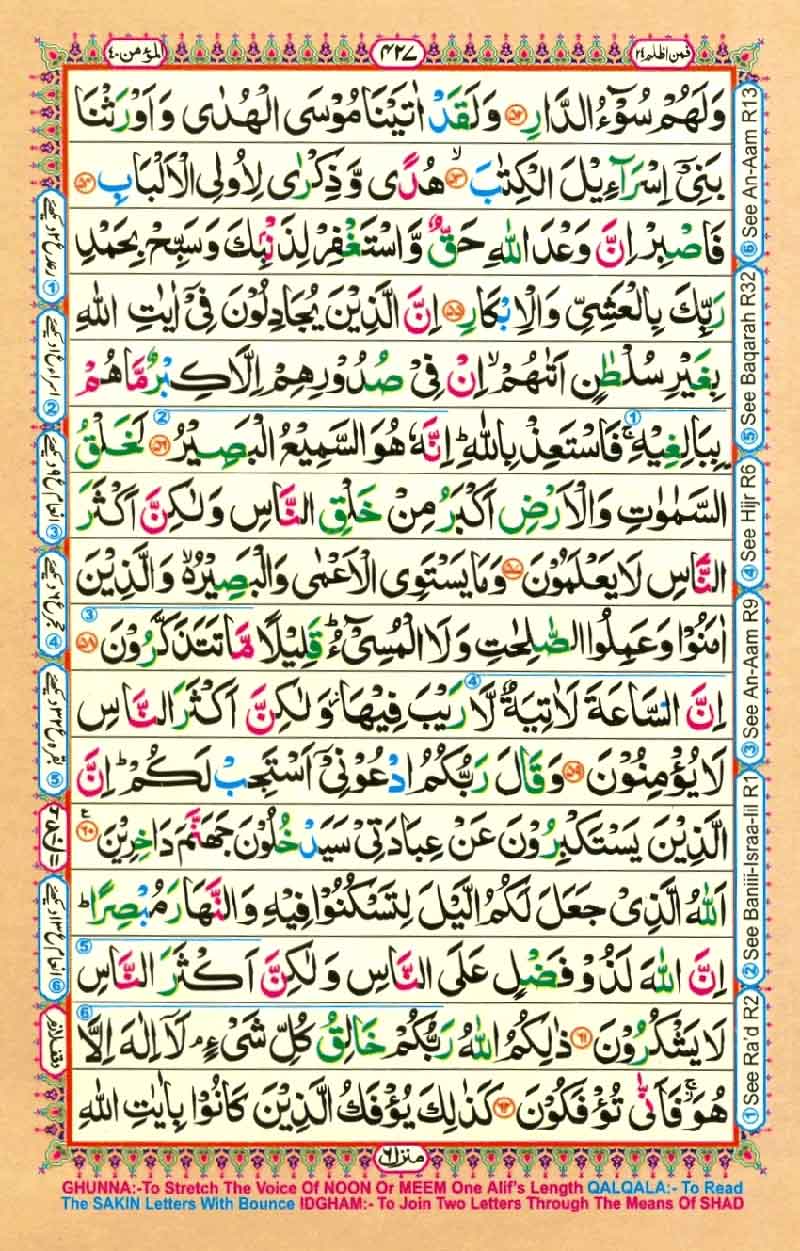 المؤمن ٤٠
٤٢٧
فمن اظلم ٢٤
وَلَهُمْ سُوْٓءُ الدَّارِ ۵۲ وَلَقَدْ اٰتَيْنَا مُوْسَى الْهُدٰى وَاَوْرَثْنَا
بَنِىْٓ اِسْرَآءِيْلَ الْكِتٰبَ ۵۳ۙ هُدًى وَّذِكْرٰى لِاُولِى الْاَلْبَابِ ۵۴
فَاصْبِرْ اِنَّ وَعْدَ اللّٰهِ حَقٌّ وَّاسْتَغْفِرْ لِذَنْۢبِكَ وَسَبِّحْ بِحَمْدِ
رَبِّكَ بِالْعَشِىِّ وَالْاِبْكَارِ ۵۵ اِنَّ الَّذِيْنَ يُجَادِلُوْنَ فِىْٓ اٰيٰتِ اللّٰهِ
بِغَيْرِ سُلْطٰنٍ اَتٰىهُمْ ۙ اِنْ فِىْ صُدُوْرِهِمْ اِلَّا كِبْرٌ مَّا هُمْ
بِبَالِغِيْهِ ۚ فَاسْتَعِذْ بِاللّٰهِ ؕ اِنَّهٗ هُوَ السَّمِيْعُ الْبَصِيْرُ ۵۶ لَخَلْقُ
السَّمٰوٰتِ وَالْاَرْضِ اَكْبَرُ مِنْ خَلْقِ النَّاسِ وَلٰكِنَّ اَكْثَرَ
النَّاسِ لَا يَعْلَمُوْنَ ۵۷ وَمَا يَسْتَوِى الْاَعْمٰى وَالْبَصِيْرُ ۙ وَالَّذِيْنَ
اٰمَنُوْا وَعَمِلُوا الصّٰلِحٰتِ وَلَا الْمُسِىْٓءُ ؕ قَلِيْلًا مَّا تَتَذَكَّرُوْنَ ۵۸
اِنَّ السَّاعَةَ لَاٰتِيَةٌ لَّا رَيْبَ فِيْهَا وَلٰكِنَّ اَكْثَرَ النَّاسِ
لَا يُؤْمِنُوْنَ ۵۹ وَقَالَ رَبُّكُمُ ادْعُوْنِىْٓ اَسْتَجِبْ لَكُمْ ؕ اِنَّ
الَّذِيْنَ يَسْتَكْبِرُوْنَ عَنْ عِبَادَتِىْ سَيَدْخُلُوْنَ جَهَنَّمَ دَاخِرِيْنَ ۶۰
اَللّٰهُ الَّذِىْ جَعَلَ لَكُمُ الَّيْلَ لِتَسْكُنُوْا فِيْهِ وَالنَّهَارَ مُبْصِرًا ؕ
اِنَّ اللّٰهَ لَذُوْ فَضْلٍ عَلَى النَّاسِ وَلٰكِنَّ اَكْثَرَ النَّاسِ
لَا يَشْكُرُوْنَ ۶۱ ذٰلِكُمُ اللّٰهُ رَبُّكُمْ خَالِقُ كُلِّ شَىْءٍ ۘ لَآ اِلٰهَ اِلَّا
هُوَ ۚ فَاَنّٰى تُؤْفَكُوْنَ ۶۲ كَذٰلِكَ يُؤْفَكُ الَّذِيْنَ كَانُوْا بِاٰيٰتِ اللّٰهِ
منزل ٦
① See Ra'd R2
② See Baniii-Israa-Iil R1
③ See An-Aam R9
④ See Hijr R6
⑤ See Baqarah R32
⑥ See An-Aam R13
GHUNNA:-To Stretch The Voice Of NOON Or MEEM One Alif's Length QALQALA:- To Read
The SAKIN Letters With Bounce IDGHAM:- To Join Two Letters Through The Means Of SHAD